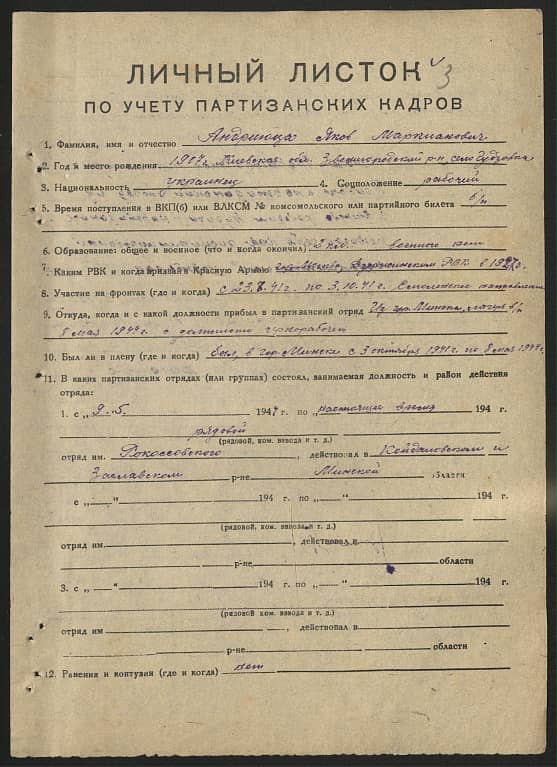 ЛИЧНЫЙ ЛИСТОК 3
ПО УЧЕТУ ПАРТИЗАНСКИХ КАДРОВ
1. Фамилия, имя и отчество Яков
2. Год и место рождения 1907 г. Киевская обл. Звенигородский р-н село Гудзовка
3. Национальность украинец 4. Соцположение рабочий
5. Время поступления в ВКП(б) или ВЛКСМ № комсомольского или партийного билета б/п
6. Образование: общее и военное (что и когда окончил) военного нет
7. Каким РВК и когда призван в Красную Армию РВК в
8. Участие на фронтах (где и когда) с 23. 41 г. по 3.10.41 г.
9. Откуда, когда и с какой должности прибыл в партизанский отряд Из гор. Минска, лагерь в/п
8 мая 1944 г. с должности чернорабочий
10. Был ли в плену (где и когда) был, в гор. Минске с 3 октября 1941 г. по 8 мая 1944 г.
11. В каких партизанских отрядах (или группах) состоял, занимаемая должность и район действия
отряда:
1. с „ 9.5. 1944 г. по „ настоящее время 194 г.
рядовой
(рядовой, ком. взвода и т. д.)
отряд им. Рокоссовского, действовал в Койдановском и
Заславском р-не Минской области
с „ — “ 194 г. по „ — “ 194 г.
(рядовой, ком. взвода и т. д.)
отряд им. , действовал в
р-не области
3. с „ — “ 194 г. по „ — “ 194 г.
(рядовой, ком. взвода и т. д.)
отряд им , действовал в
р-не области
12. Ранения и контузии (где и когда) нет